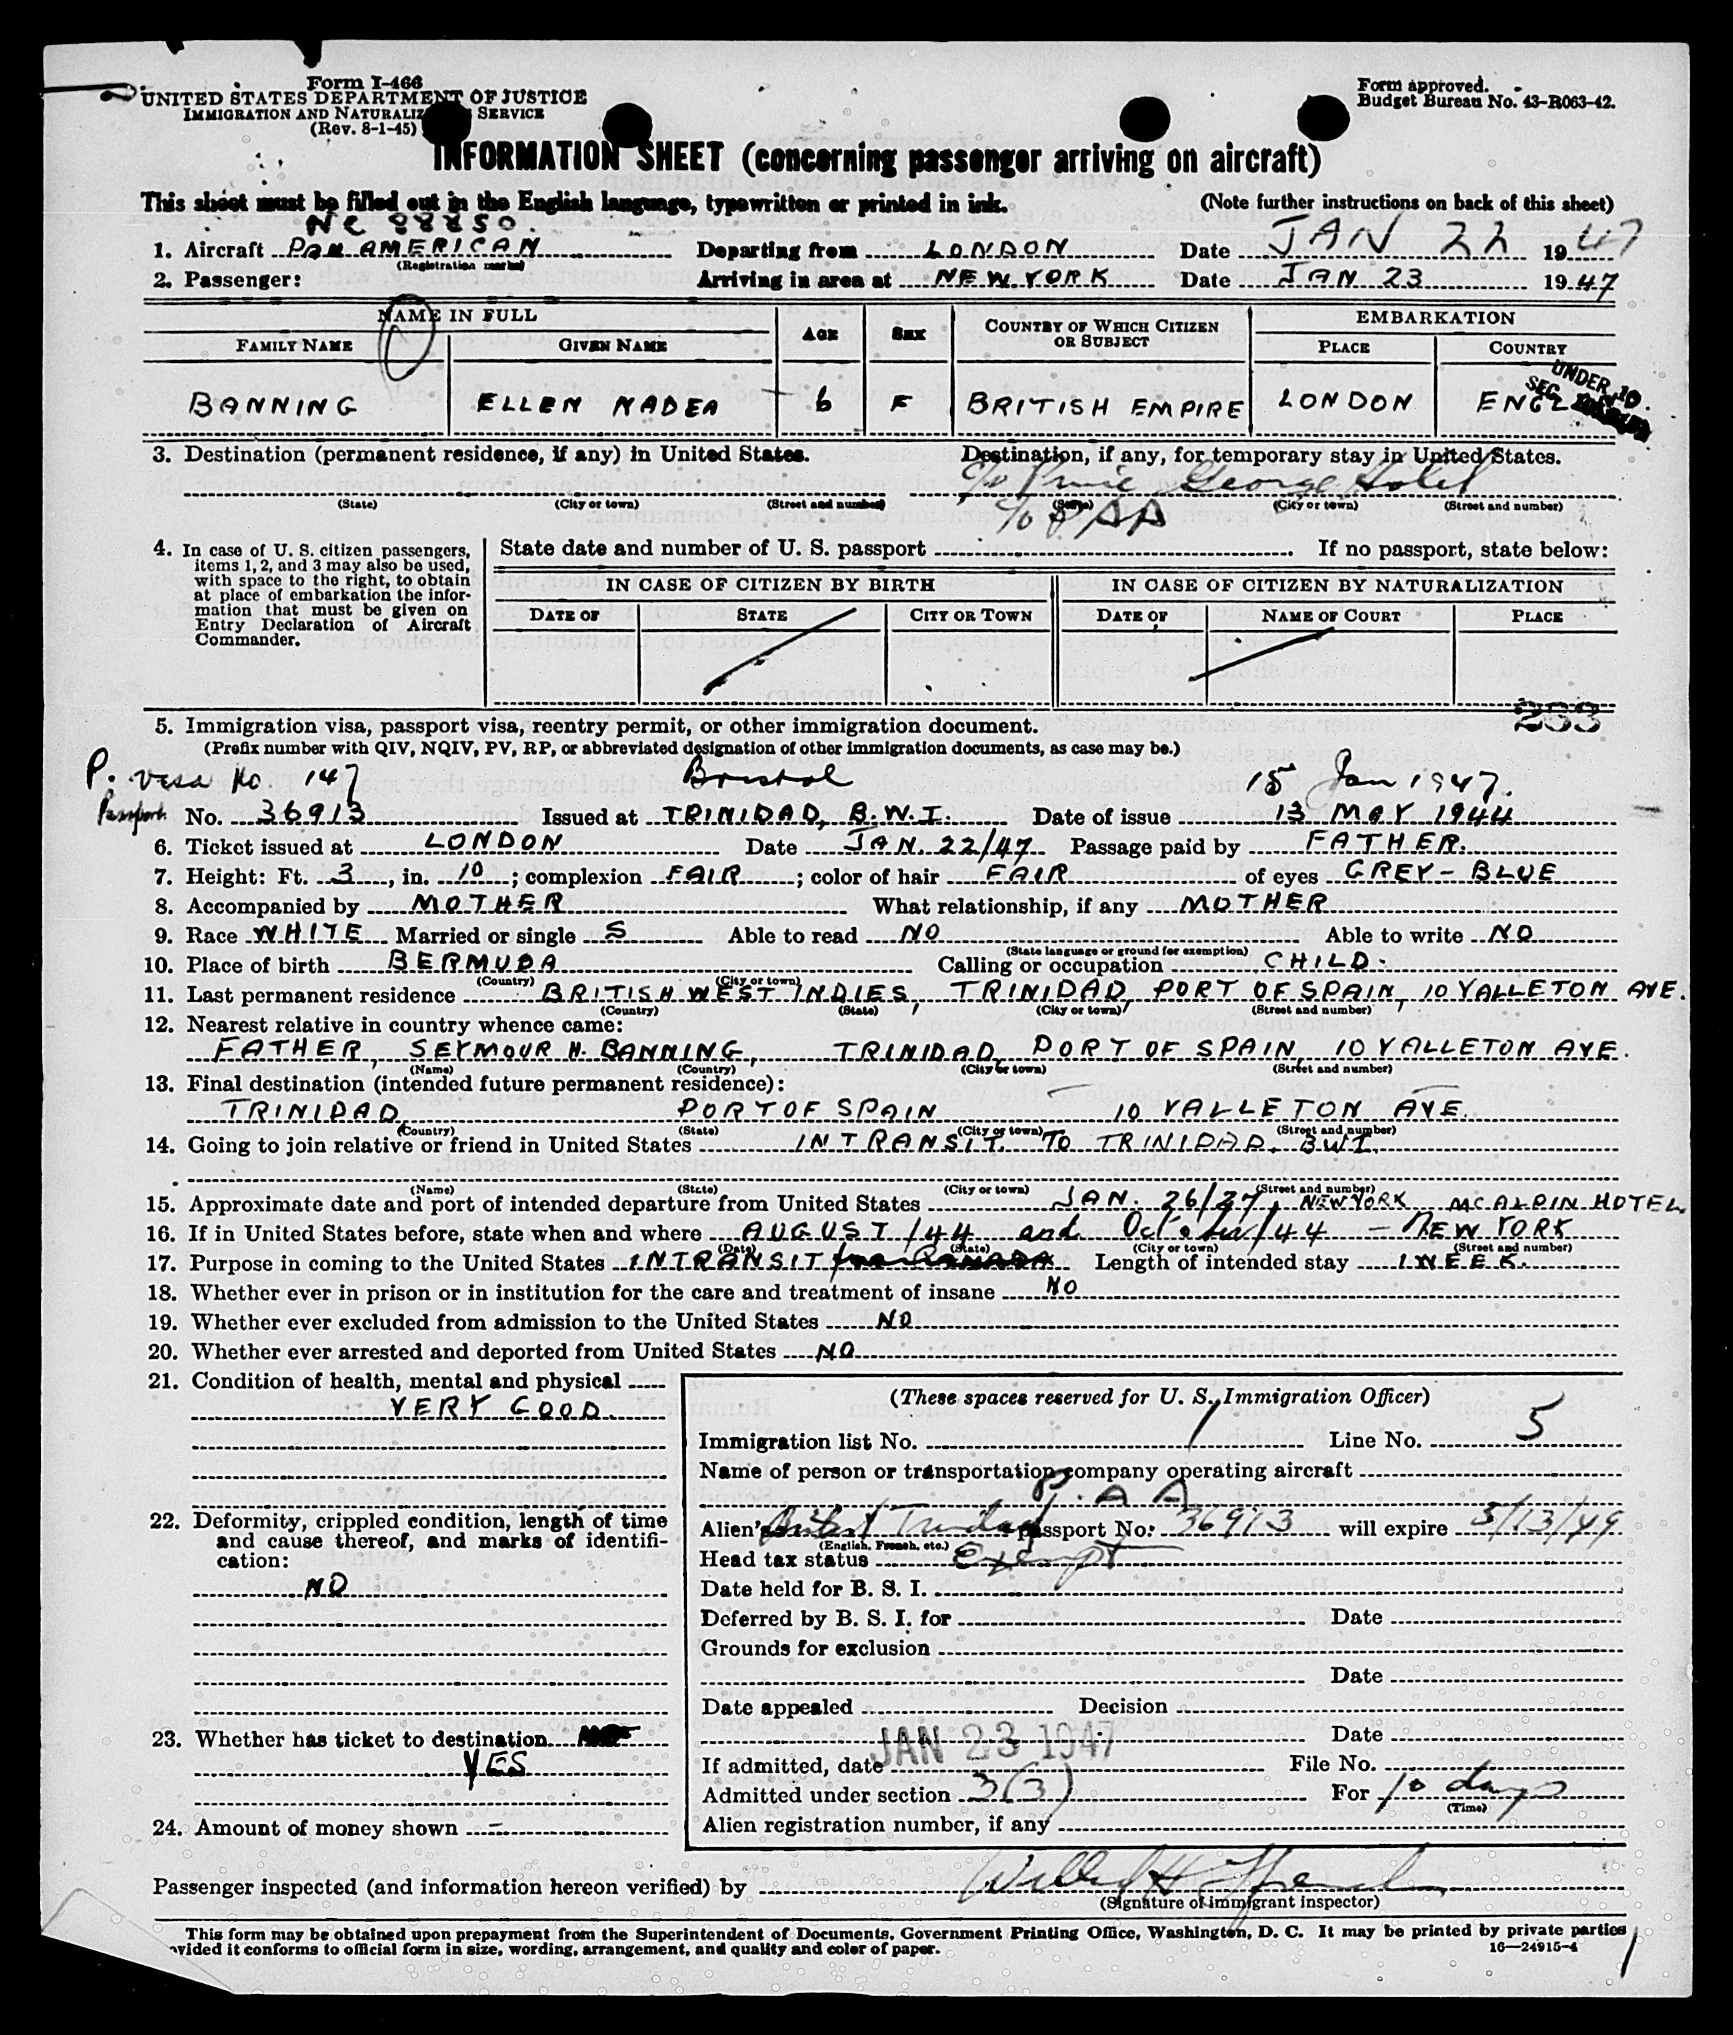 Form I-466
UNITED STATES DEPARTMENT OF JUSTICE
IMMIGRATION AND NATURALIZ SERVICE
(Rev. 8-1-45)
Form approved.
Budget Bureau No. 43-R063-42.
INFORMATION SHEET (concerning passenger arriving on aircraft)
This sheet must be filled out in the English language, typewritten or printed in ink. (Note further instructions on back of this sheet)
NC 88850.
1. Aircraft PAN AMERICAN Departing from LONDON Date JAN 22 1947
(Registration marks)
2. Passenger: Arriving in area at NEW YORK Date JAN 23 1947
NAME IN FULL AGE SEX COUNTRY OF WHICH CITIZEN OR SUBJECT EMBARKATION
FAMILY NAME GIVEN NAME PLACE COUNTRY
UNDER 10
SEC
BANNING ELLEN NADEA 6 F BRITISH EMPIRE LONDON ENGL
3. Destination (permanent residence, if any) in United States. Destination, if any, for temporary stay in United States.
c/o George Hotel
(State) (City or town) (Street and number) (State) (City or town) (Street and number)
c/o PAA
4. In case of U. S. citizen passengers, items 1, 2, and 3 may also be used, with space to the right, to obtain at place of embarkation the information that must be given on Entry Declaration of Aircraft Commander.
State date and number of U. S. passport . If no passport, state below:
IN CASE OF CITIZEN BY BIRTH IN CASE OF CITIZEN BY NATURALIZATION
DATE OF STATE CITY OR TOWN DATE OF NAME OF COURT PLACE
233
5. Immigration visa, passport visa, reentry permit, or other immigration document.
(Prefix number with QIV, NQIV, PV, RP, or abbreviated designation of other immigration documents, as case may be.)
P. visa No 147 Bristol 15 Jan 1947.
Passport No. 36913 Issued at TRINIDAD, B.W.I. Date of issue 13 MAY 1944
6. Ticket issued at LONDON Date JAN. 22/47 Passage paid by FATHER.
7. Height: Ft. 3, in. 10; complexion FAIR; color of hair FAIR of eyes GREY-BLUE
8. Accompanied by MOTHER What relationship, if any MOTHER
9. Race WHITE Married or single S Able to read NO Able to write NO
(State language or ground for exemption)
10. Place of birth BERMUDA Calling or occupation CHILD.
(Country) (City or town)
11. Last permanent residence BRITISH WEST INDIES, TRINIDAD, PORT OF SPAIN, 10 YALLETON AVE.
(Country) (State) (City or town) (Street and number)
12. Nearest relative in country whence came:
FATHER, SEYMOUR H. BANNING, TRINIDAD, PORT OF SPAIN, 10 YALLETON AVE.
(Name) (Country) (City or town) (Street and number)
13. Final destination (intended future permanent residence):
TRINIDAD, PORT OF SPAIN 10 YALLETON AVE.
(Country) (State) (City or town) (Street and number)
14. Going to join relative or friend in United States IN TRANSIT. TO TRINIDAD. BWI.
(Name) (State) (City or town) (Street and number)
15. Approximate date and port of intended departure from United States JAN. 26/27, NEW YORK MCALPIN HOTEL
16. If in United States before, state when and where AUGUST/44 and October/44 - NEW YORK
(Date) (State) (City or town) (Street and number)
17. Purpose in coming to the United States IN TRANSIT Length of intended stay 1 WEEK.
18. Whether ever in prison or in institution for the care and treatment of insane NO
19. Whether ever excluded from admission to the United States NO
20. Whether ever arrested and deported from United States NO
21. Condition of health, mental and physical
VERY GOOD.
22. Deformity, crippled condition, length of time and cause thereof, and marks of identification:
NO
23. Whether has ticket to destination
YES
24. Amount of money shown -
(These spaces reserved for U. S. Immigration Officer)
Immigration list No. 1 Line No. 5
Name of person or transportation company operating aircraft
P. A A
Alien's Trinidad passport No. 36913 will expire 5/13/49
(English, French, etc.)
Head tax status Exempt
Date held for B. S. I.
Deferred by B. S. I. for Date
Grounds for exclusion
Date
Date appealed Decision
Date
If admitted, date JAN 23 1947 File No.
Admitted under section 3(3) For 10 days
(Time)
Alien registration number, if any
Passenger inspected (and information hereon verified) by
(Signature of immigrant inspector)
This form may be obtained upon prepayment from the Superintendent of Documents, Government Printing Office, Washington, D. C. It may be printed by private parties
vided it conforms to official form in size, wording, arrangement, and quality and color of paper. 16—24915-4